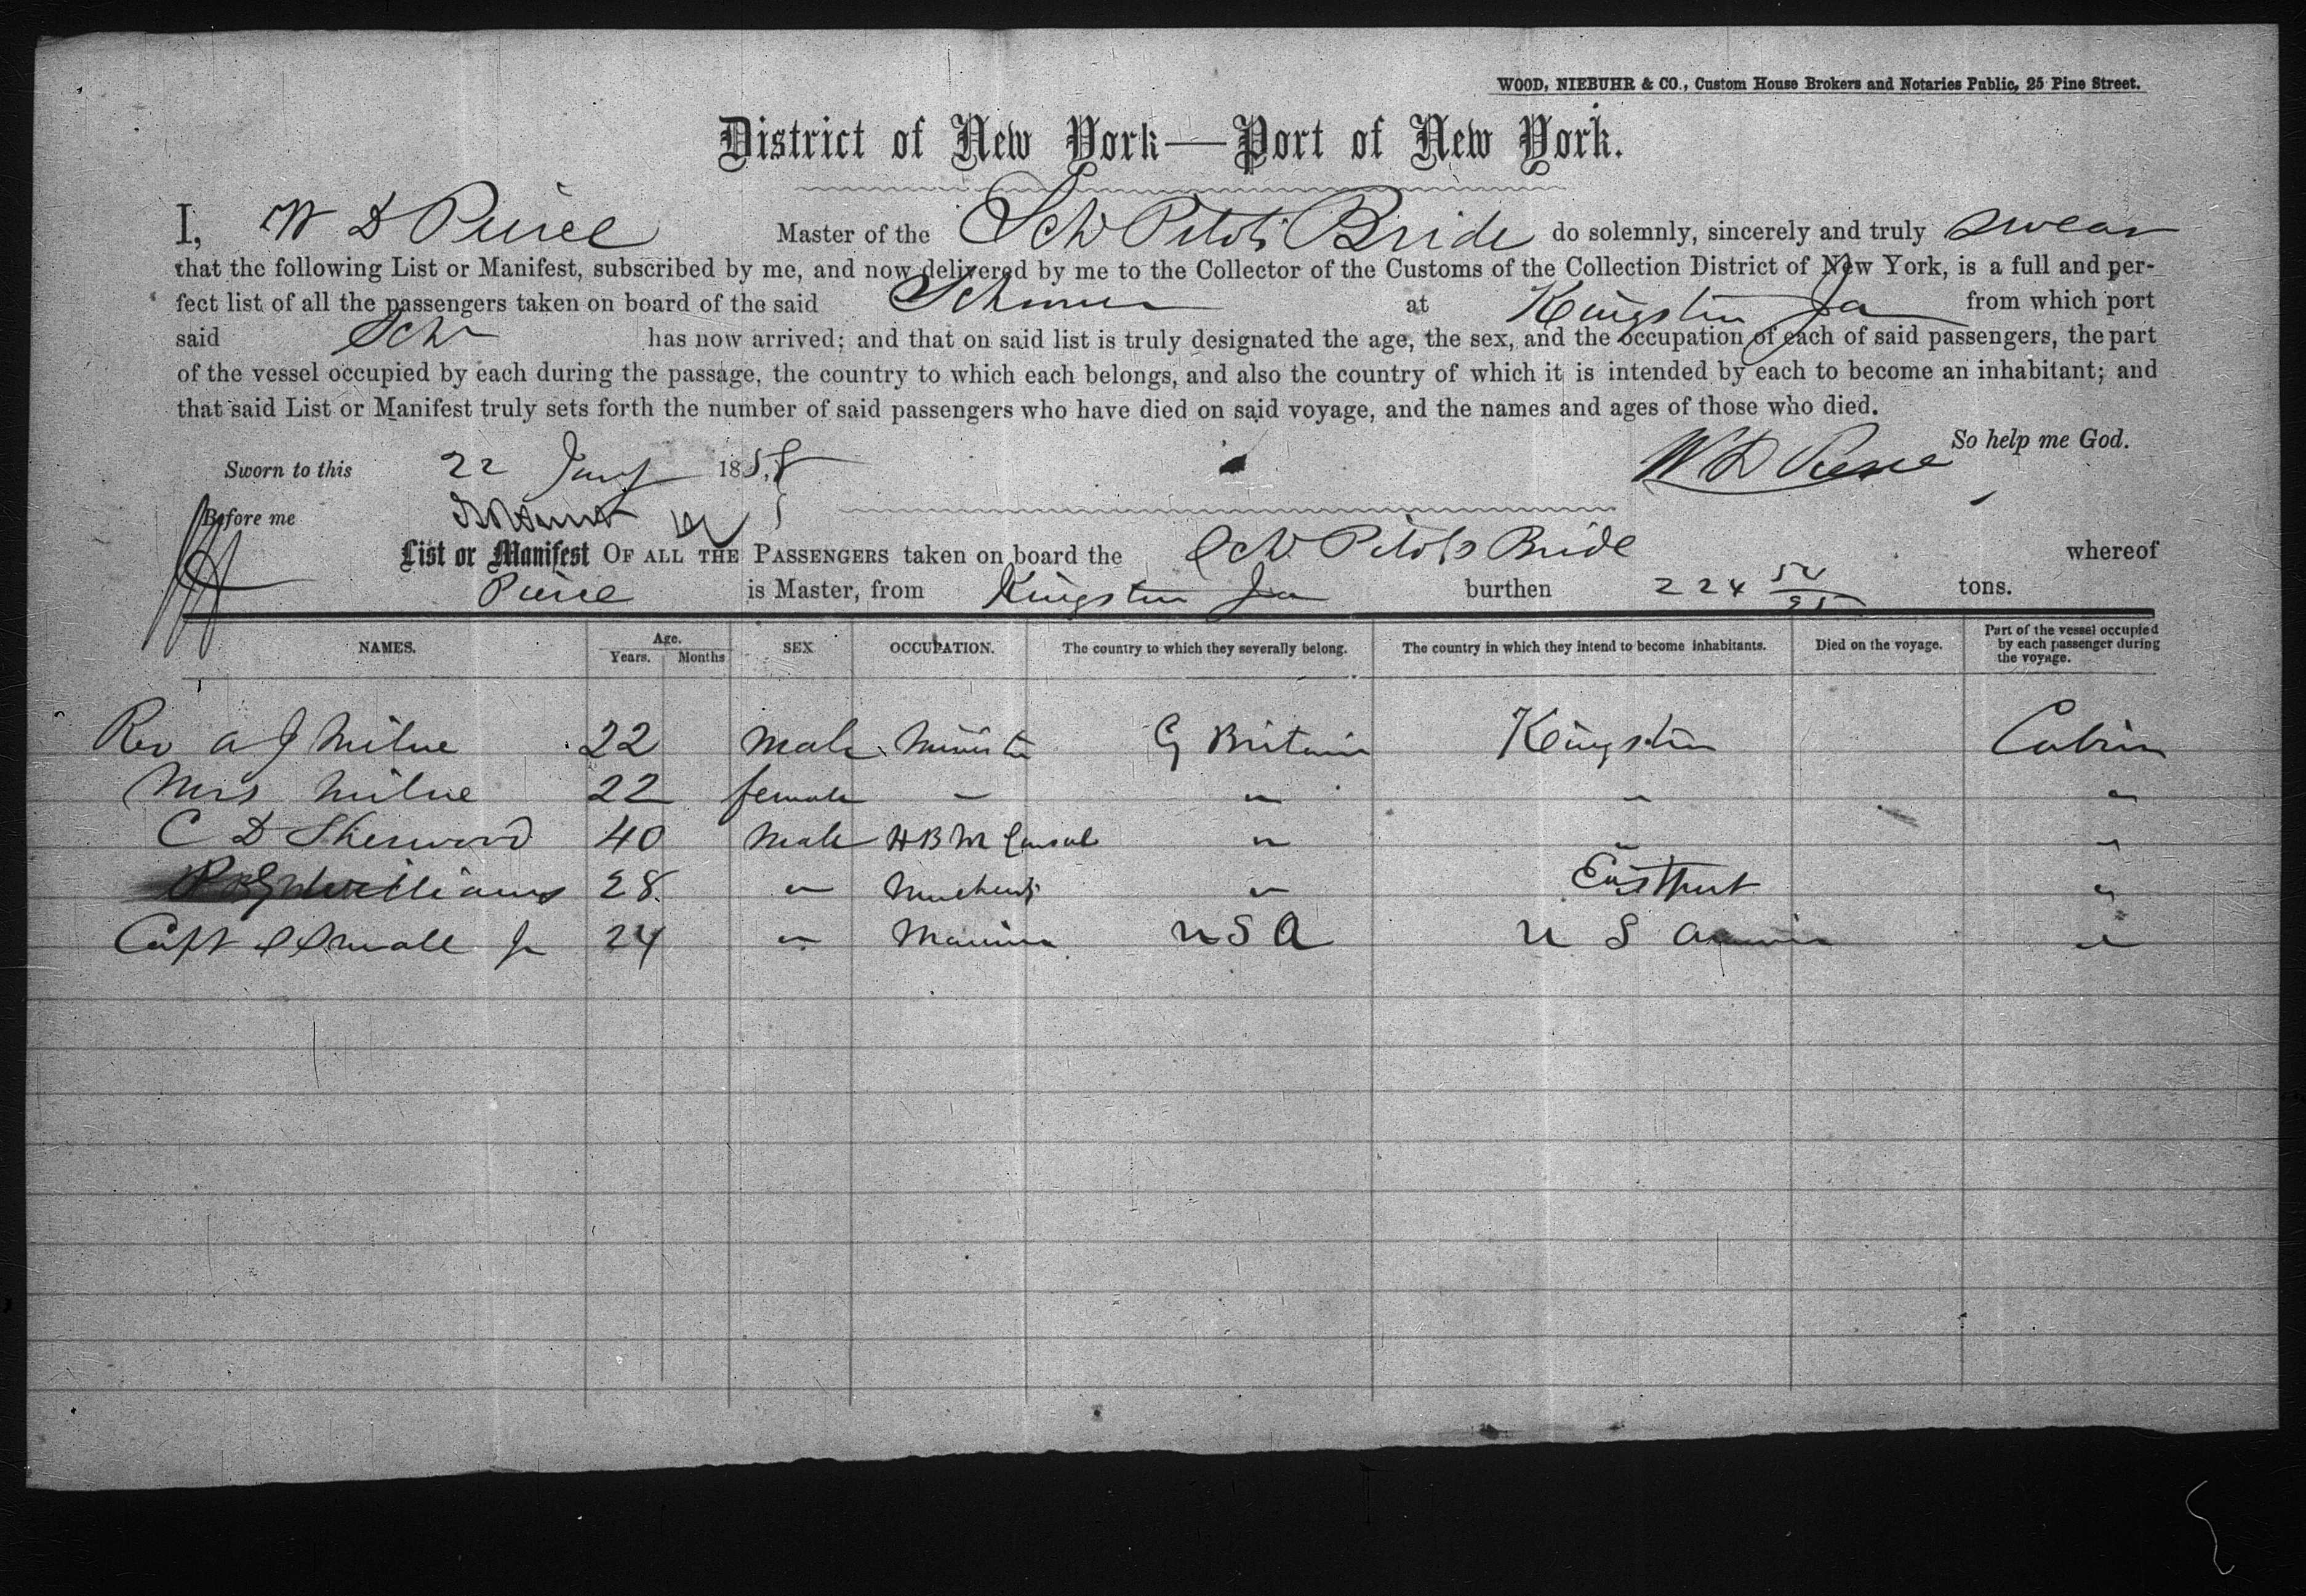 WOOD, NIEBUHR & CO., Custom House Brokers and Notaries Public, 25 Pine Street.
District of New York—Port of New York.
I, W D Peirce Master of the Sch Pilots Bride do solemnly, sincerely and truly swear
that the following List or Manifest, subscribed by me, and now delivered by me to the Collector of the Customs of the Collection District of New York, is a full and per-
fect list of all the passengers taken on board of the said Schooner at Kingston Ja from which port
said Schr has now arrived; and that on said list is truly designated the age, the sex, and the occupation of each of said passengers, the part
of the vessel occupied by each during the passage, the country to which each belongs, and also the country of which it is intended by each to become an inhabitant; and
that said List or Manifest truly sets forth the number of said passengers who have died on said voyage, and the names and ages of those who died.
So help me God.
Sworn to this 22 Jany 1858 W D Peirce
Before me
List or Manifest OF ALL THE PASSENGERS taken on board the Sch Pilots Bride whereof
Peirce is Master, from Kingston Ja burthen 224 54/95 tons.
NAMES. Age. Years. Months SEX OCCUPATION. The country to which they severally belong. The country in which they intend to become inhabitants. Died on the voyage. Part of the vessel occupied by each passenger during the voyage.
Rev A J Milne 22 Male Minister G Britain Kingston Cabin
Mrs Milne 22 female - " " "
C D Sherwood 40 Male H B M Consul " " "
Williams 28 " Merchant " Eastport "
Capt Small Jr 24 " Mariner U S A U S America "